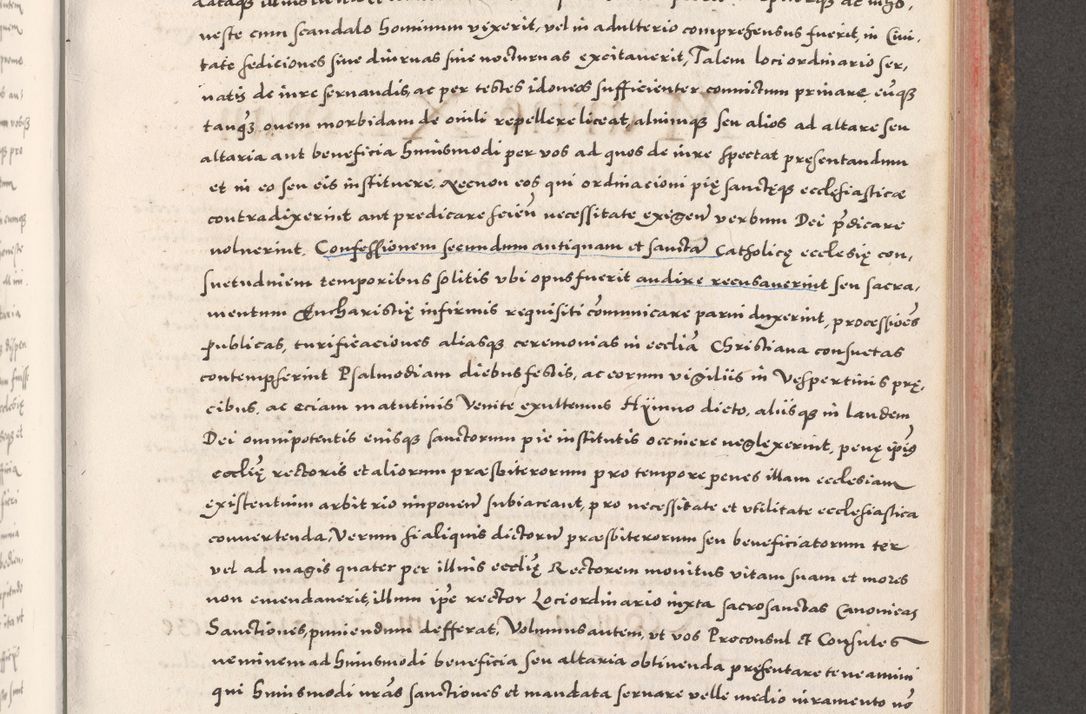 neste cum scandalo hominum vixerit, vel in adulterio comprehensus fuerit, in Ciui-
tate sediciones siue diurnas siue nocturnas excitauerit, Talem loci ordinario ser-
uatis de iure seruandis, ac per testes idoneos sufficienter conuictum priuare, eumq3
tanq3 ouem morbidam de ouili repellere liceat, aliumque seu alios ad altare seu
altaria aut beneficia huiusmodi per vos ad quos de iure spectat presentandum
et in eo seu eis instituere, Necnon eos qui ordinacioni pię sanctęq3 ecclesiasticæ
contradixerint aut predicare seriem necessitate exigen verbum Dei p̃dicare
noluerint. Confessionem secundum antiquam et sanctã Catholicę ecclesię con-
suetudinem temporibus solitis vbi opus fuerit audire recusauerint seu sacra-
mentum Eucharistię infirmis requisiti cõmunicare parui duxerint, processiões
publicas, turificaciones aliasq3 ceremonias in ecclia Christiana consuetas
contempserint Psalmodiam diebus festis, ac eorum vigiliis in Vespertinis prę-
cibus, ac eciam matutinis Venite exultemus Hÿmno dicto, aliisque in laudem
Dei omnipotentis eiusq3 sanctorum pie institutis occinere neglexerint, penę ipĩus
ecclię rectoris et aliorum præsbiterorum pro tempore penes illam ecclesiam
existentium arbitrio imponen subiaceant, pro necessitate et vtilitate ecclesiastica
conuertenda, Verum si aliquis dictorum præsbiterorum seu beneficiatorum ter
vel ad magis quater per illius ecclię Rectorem monitus vitam suam et mores
non emendauerit, illum ipẽ rector Loci ordinario iuxta sacrosanctas Canonicas
Sanctiones, puniendum defferat, Volumus autem, vt vos Proconsul et Consules
neminem ad huiusmodi beneficia seu altaria obtinenda presentare teneamini
qui huiusmodi nrãs sanctiones et mandata seruare velle medio iuramento nõ